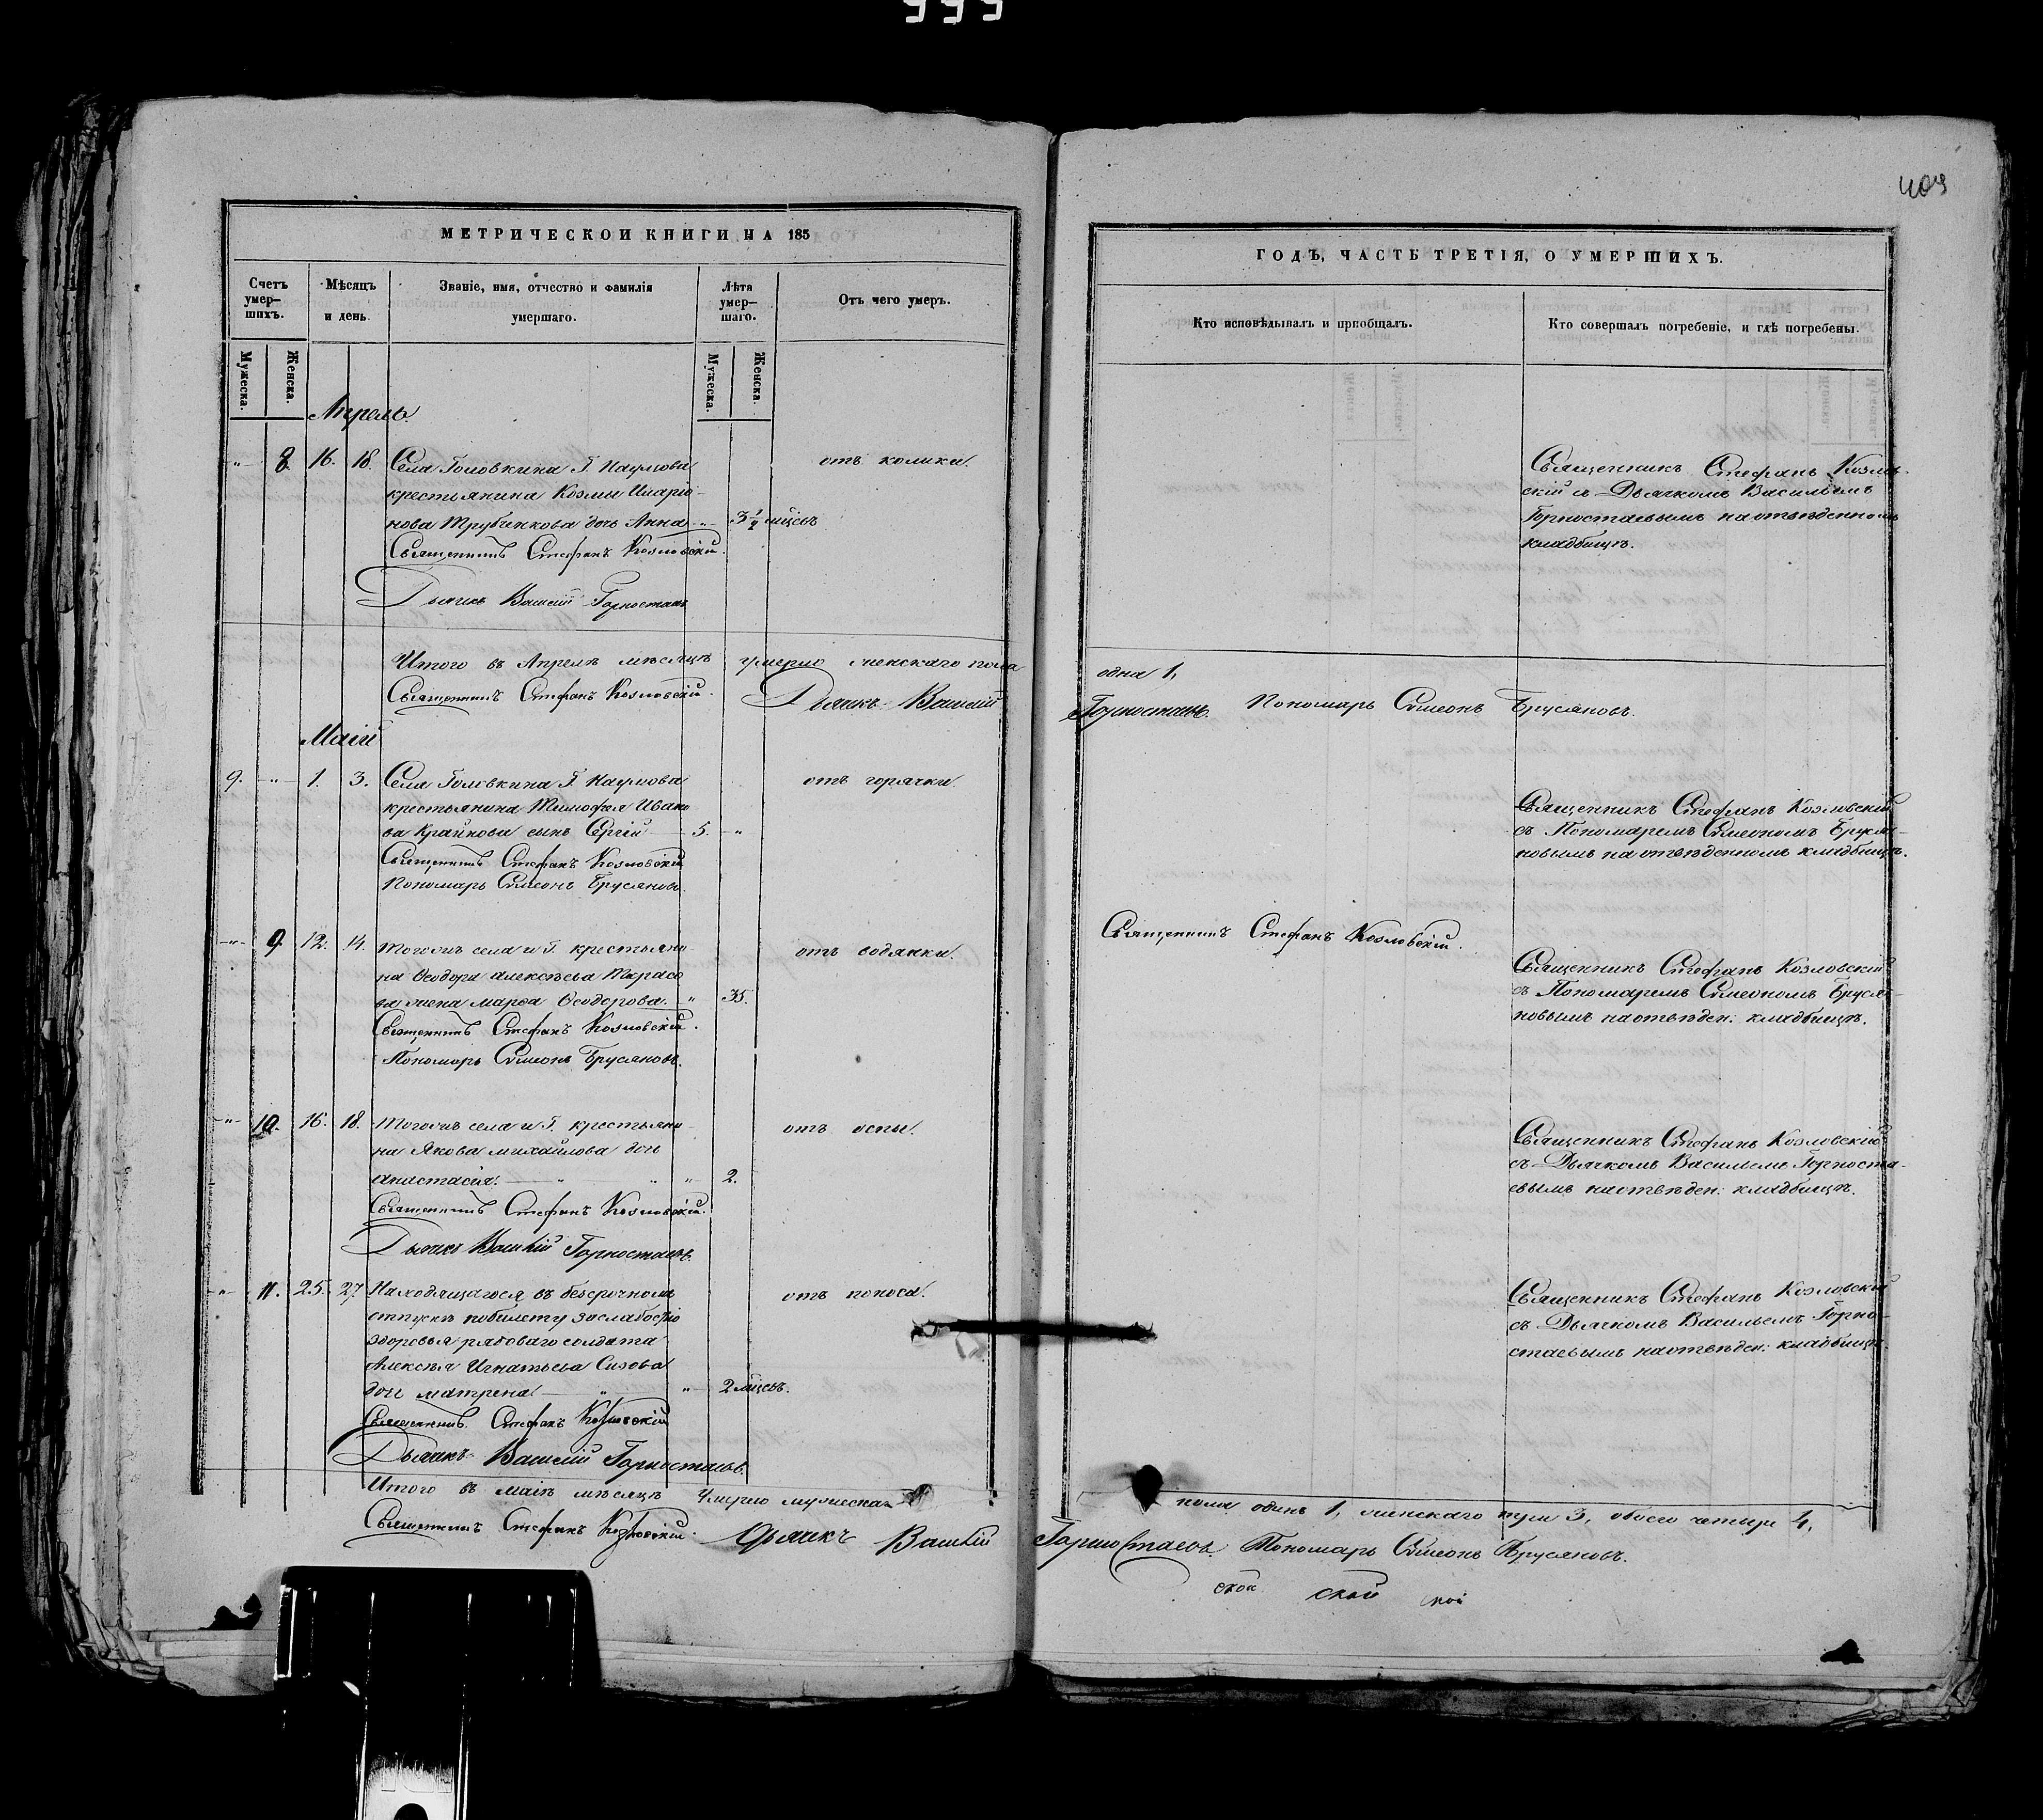 409
МЕТРИЧЕСКОЙ КНИГИ НА 185
Счетъ умер-
шихъ.
Мѣсяцъ
и день
Званіе, имя, отчество и фамилія
умершаго.
Лѣта
умер-
шаго.
Отъ чего умеръ.
Мужеска.
Женска.
Мужеска.
Женска.
Апрель.
8. 16. 18. Села Головкина Г. Наумова отъ колики.
крестьянина Козмы Иларіо-
нова Трубчикова дочь Анна 3½ мѣсъ
Священникъ Стефанъ Козловскій.
Дьячкъ Василій Горностаевъ
Итого въ Апрелѣ мѣсяцѣ умерло женскаго пола
Священникъ Стефанъ Козловскій. Дьячкъ Василій
Маій
9. 1. 3. Села Головкина Г. Наумова отъ горячки.
крестьянина Тимофея Ивано
ва Крайнова сынъ Сергій 5.
Священникъ Стефанъ Козловскій
Пономарь Симеонъ Брусяновъ.
9. 12. 14. Тогожъ села и Г. крестьяни- отъ водянки.
на Ѳеодора Алексѣева Тарасо
ва жена Марѳа Ѳеодорова. 35.
Священникъ Стефанъ Козловскій.
Пономарь Симеонъ Брусяновъ.
10. 16. 18. Тогожъ села и Г. крестьяни- отъ оспы.
на Якова Михайлова дочь
Анастасія. 2.
Священникъ Стефанъ Козловскій.
Дьячкъ Василій Горностаевъ.
11. 25. 27. Находящагося въ безсрочномъ отъ поноса.
отпускѣ побилету заслабостію
здоровья рядоваго солдата
Алексѣя Игнатьева Сизова
дочь Матрена 2 мѣсъ.
Священникъ Стефанъ Козловскій
Дьячкъ Василій Горностаевъ.
Итого въ Маіѣ мѣсяцѣ Умерло мужеска
Священникъ Стефанъ Козловскій. Дьячкъ Василій
ГОДЪ, ЧАСТЬ ТРЕТІЯ, О УМЕРШИХЪ.
Кто исповѣдывалъ и пріобщалъ.
Кто совершалъ погребеніе, и гдѣ погребены.
Священникъ Стефанъ Козлов-
скій съ Дьячкомъ Васильемъ
Горностаевымъ на отвѣденномъ
кладбищѣ.
одна 1,
Горностаевъ. Пономарь Симеонъ Брусяновъ.
Священникъ Стефанъ Козловскій
съ Пономаремъ Симеономъ Бруся-
новымъ на отвѣденномъ кладбищѣ.
Священникъ Стефанъ Козловскій.
Священникъ Стефанъ Козловскій
съ Пономаремъ Симеономъ Бруся-
новымъ на отвѣден: кладбищѣ.
Священникъ Стефанъ Козловскій
съ Дьячкомъ Васильемъ Горноста-
евымъ на отвѣден: кладбищѣ.
Священникъ Стефанъ Козловскій
съ Дьячкомъ Васильемъ Горно-
стаевымъ на отвѣден: кладбищѣ.
пола одинъ 1, женскаго три 3, обоего четыре 4,
Горностаевъ. Пономарь Симеонъ Брусяновъ.
ской ской ской